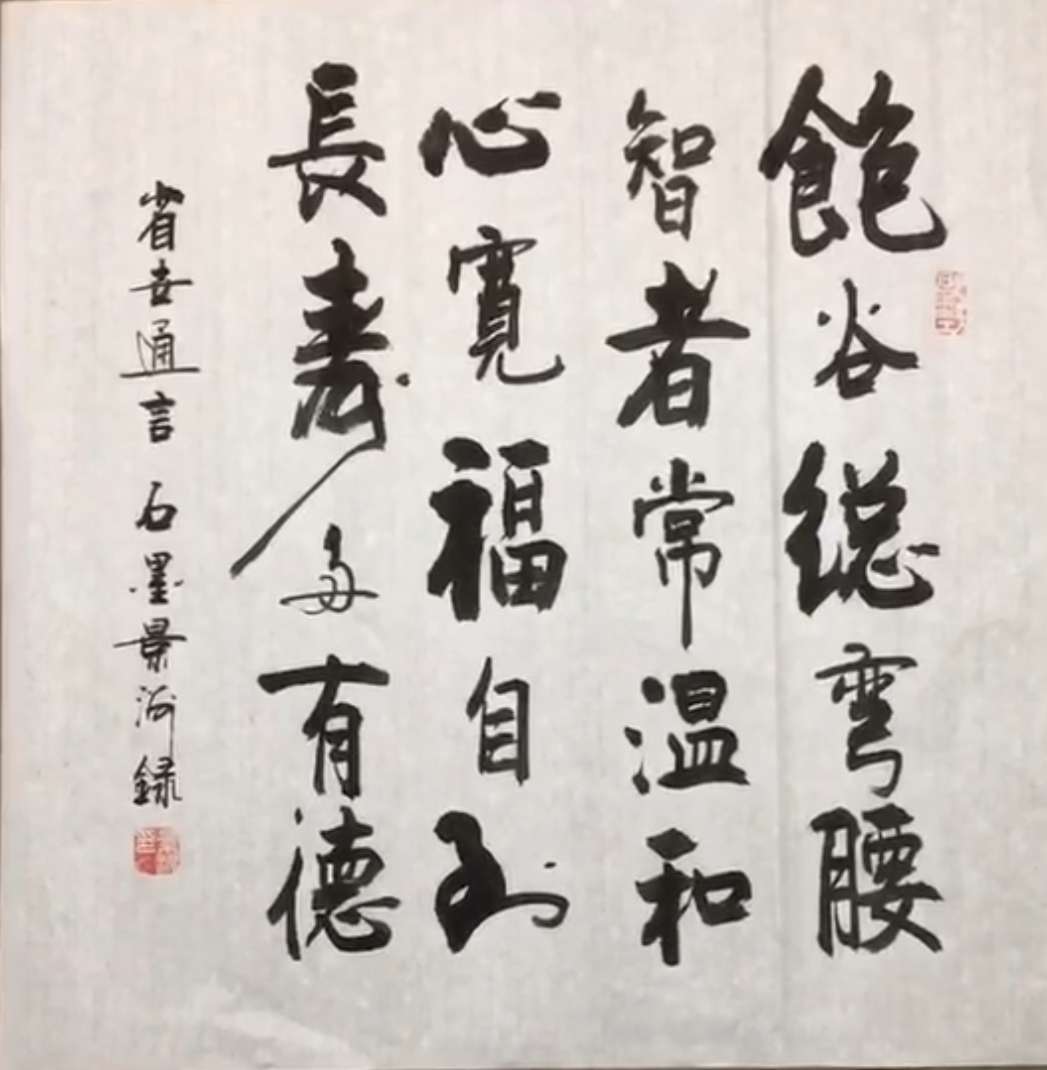 飽谷総彎腰
智者常温和
心寬福自到
長壽多有德
省世通言 石墨景河録